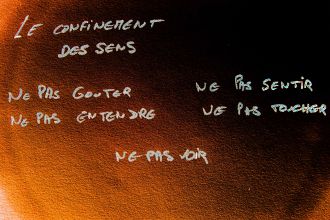 LE CONFINEMENT
DES SENS
NE PAS GOUTER
NE PAS SENTIR
NE PAS ENTENDRE
NE PAS TOUCHER
NE PAS VOIR